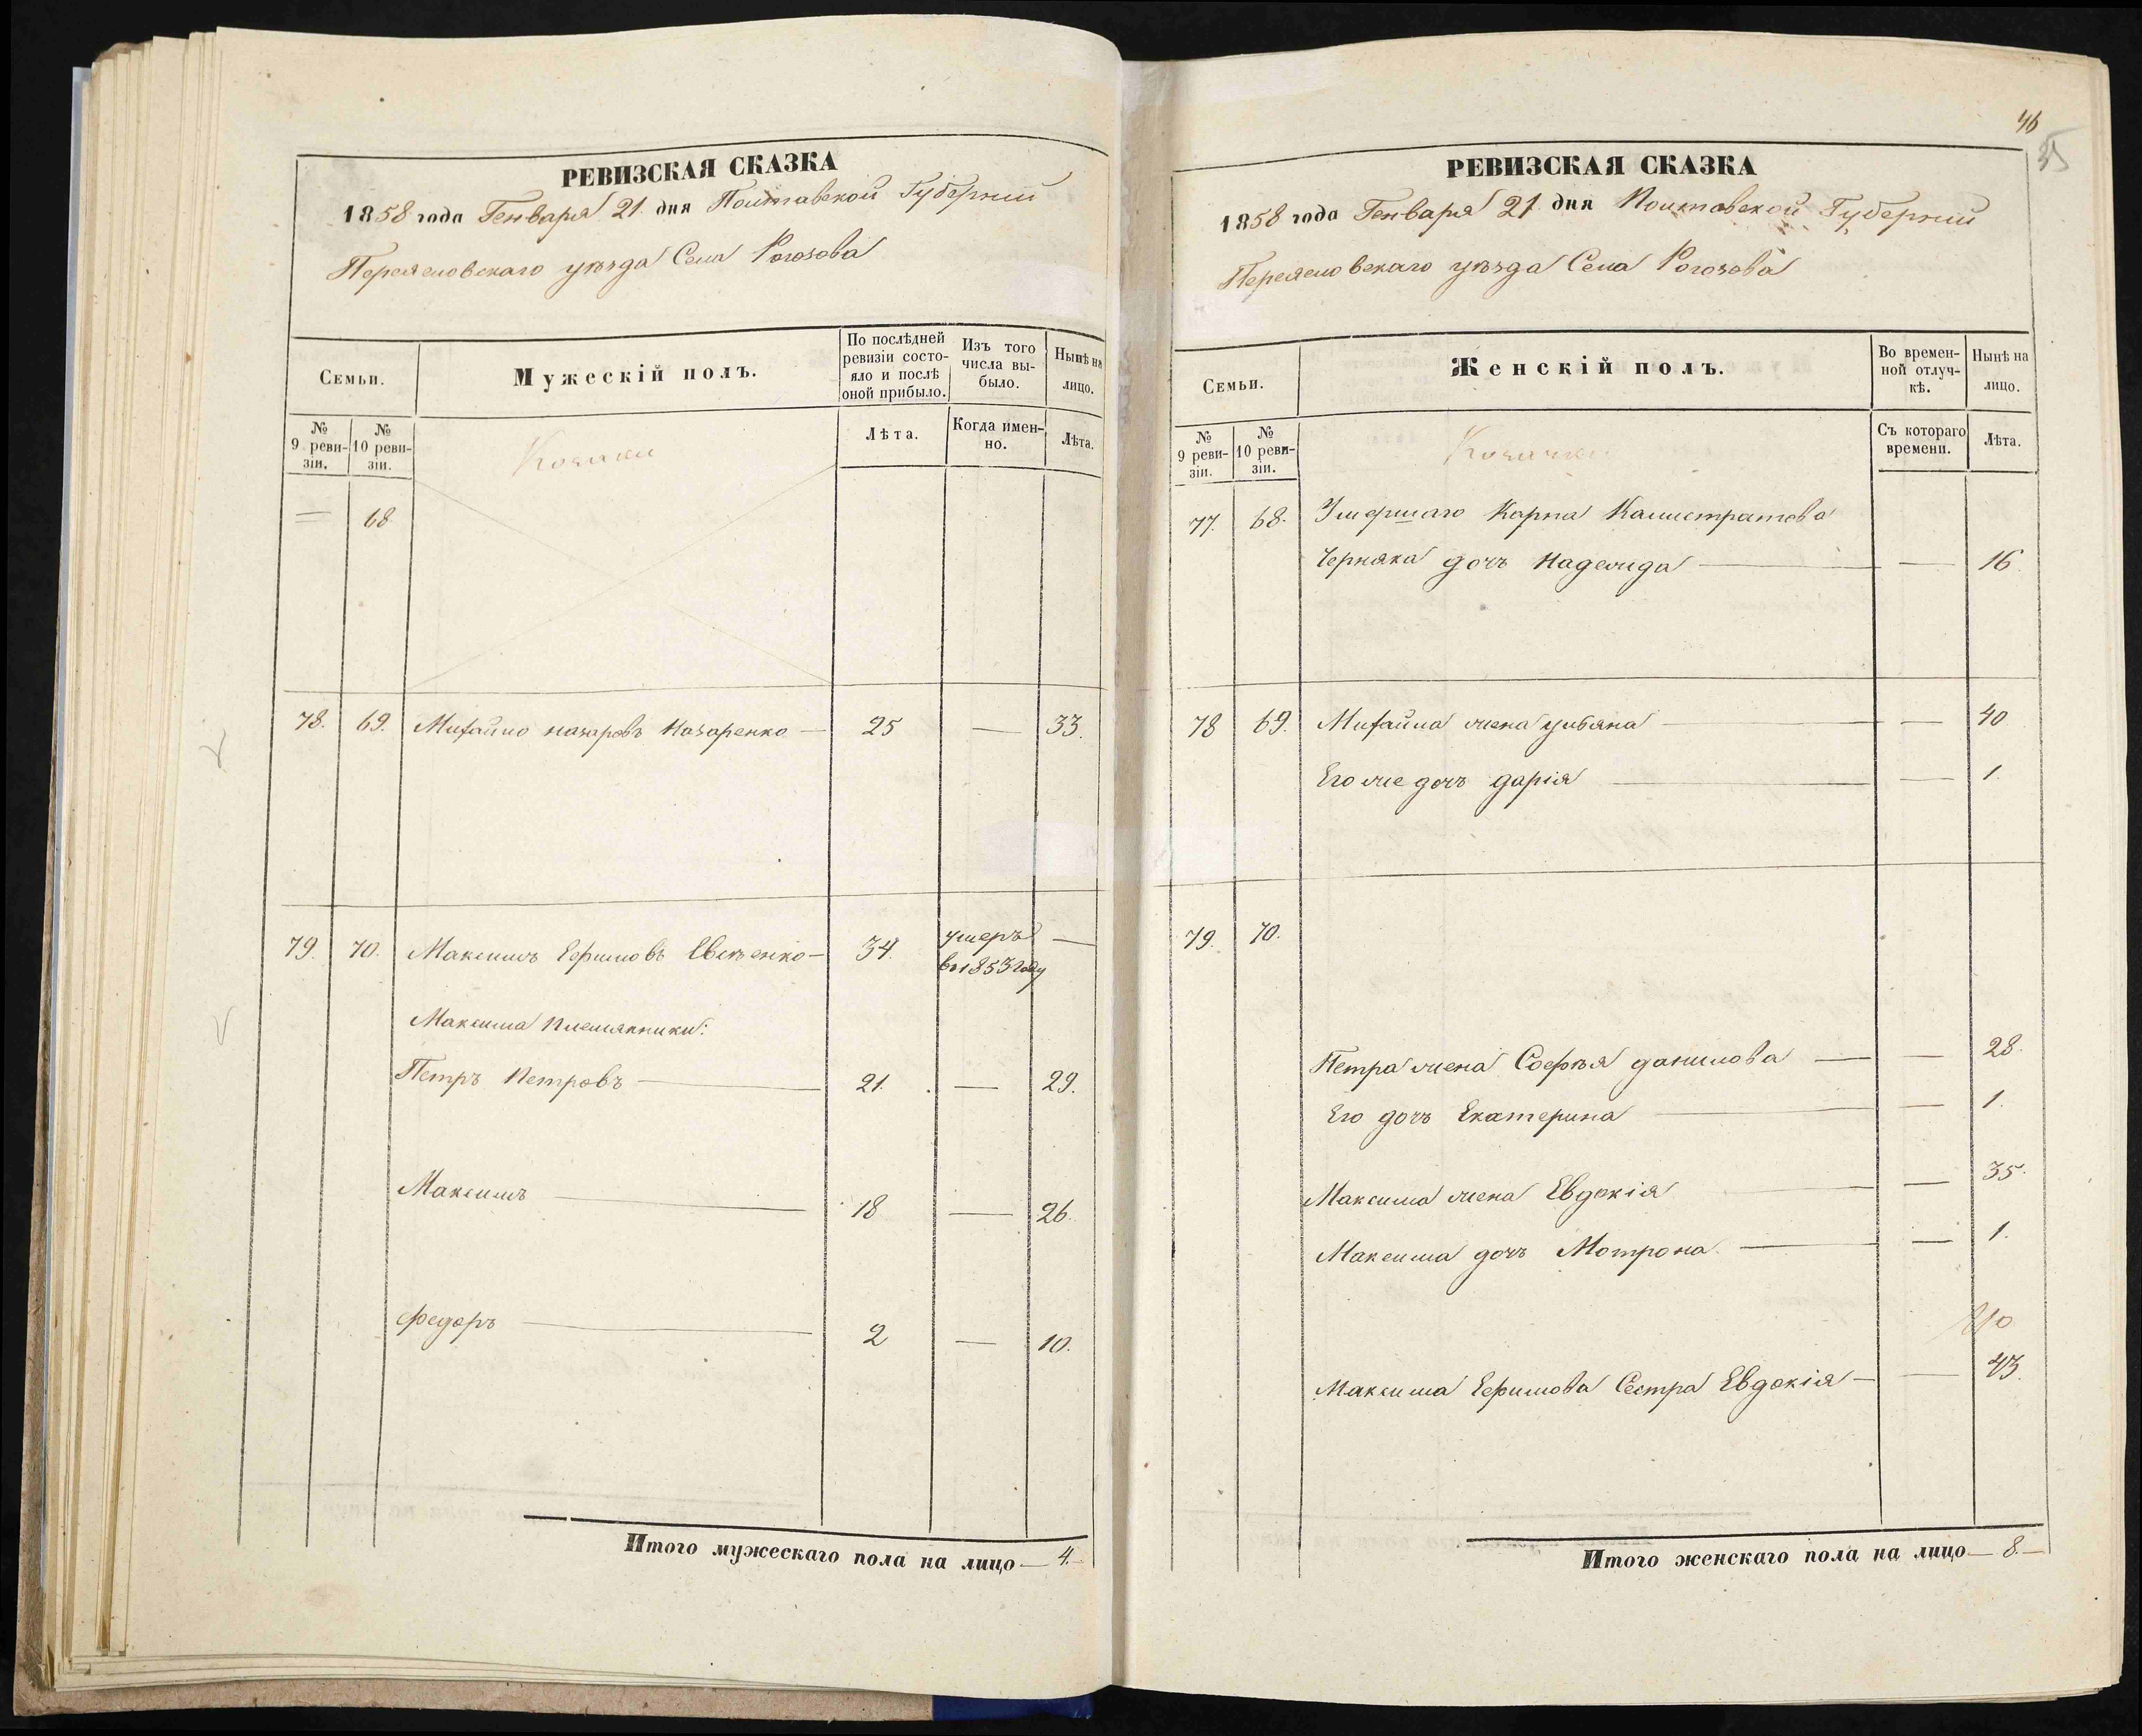 РЕВИЗСКАЯ СКАЗКА
1858 года Генваря 21 дня Полтавской Губерніи
Переясловскаго уѣзда Села Рогозова
Семьи.
Мужескій полъ.
По послѣдней ревизіи состояло и послѣ оной прибыло.
Изъ того числа выбыло.
Нынѣ на лицо.
№ 9 ревизіи.
№ 10 ревизіи.
Козаки
Лѣта.
Когда именно.
Лѣта.
— 68
78. 69. Михайло назаровъ Назаренко — 25 — 33.
79. 70. Максимъ Ефимовъ — 34. умеръ —
въ 1853 году
Максима племянники:
Петръ Петровъ — 21. — 29.
Максимъ — 18 — 26.
Федоръ — 2 — 10.
Итого мужескаго пола на лицо — 4. —
46
35
РЕВИЗСКАЯ СКАЗКА
1858 года Генваря 21 дня Полтавской Губерніи
Переясловскаго уѣзда Села Рогозова
Семьи.
Женскій полъ.
Во временной отлучкѣ.
Нынѣ на лицо.
№ 9 ревизіи.
№ 10 ревизіи.
Козачки
Съ котораго времени.
Лѣта.
77. 68. Умершаго Карпа Калистратова
Черняка дочь Надежда — — 16.
78 69. Михайла жена ульяна — — 40
Его же дочь дарія — — 1.
79. 70.
Петра жена Софья данилова — — 28.
Его дочь Екатерина — — 1.
Максима жена Евдокія — — 35.
Максима дочь Мотрона — — 1.
Максима Ефимова Сестра Евдокія — — 43.
Итого женскаго пола на лицо — 8. —